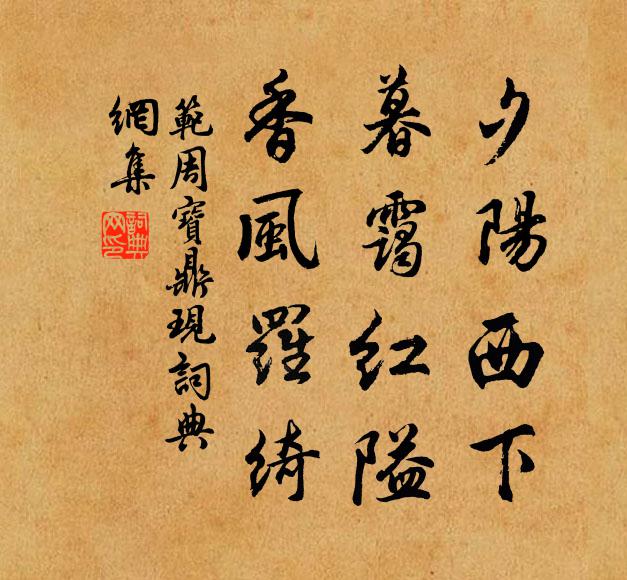 夕陽西下
暮靄紅隘
香風羅綺
範周寶鼎現詞典
網集
詞典網印